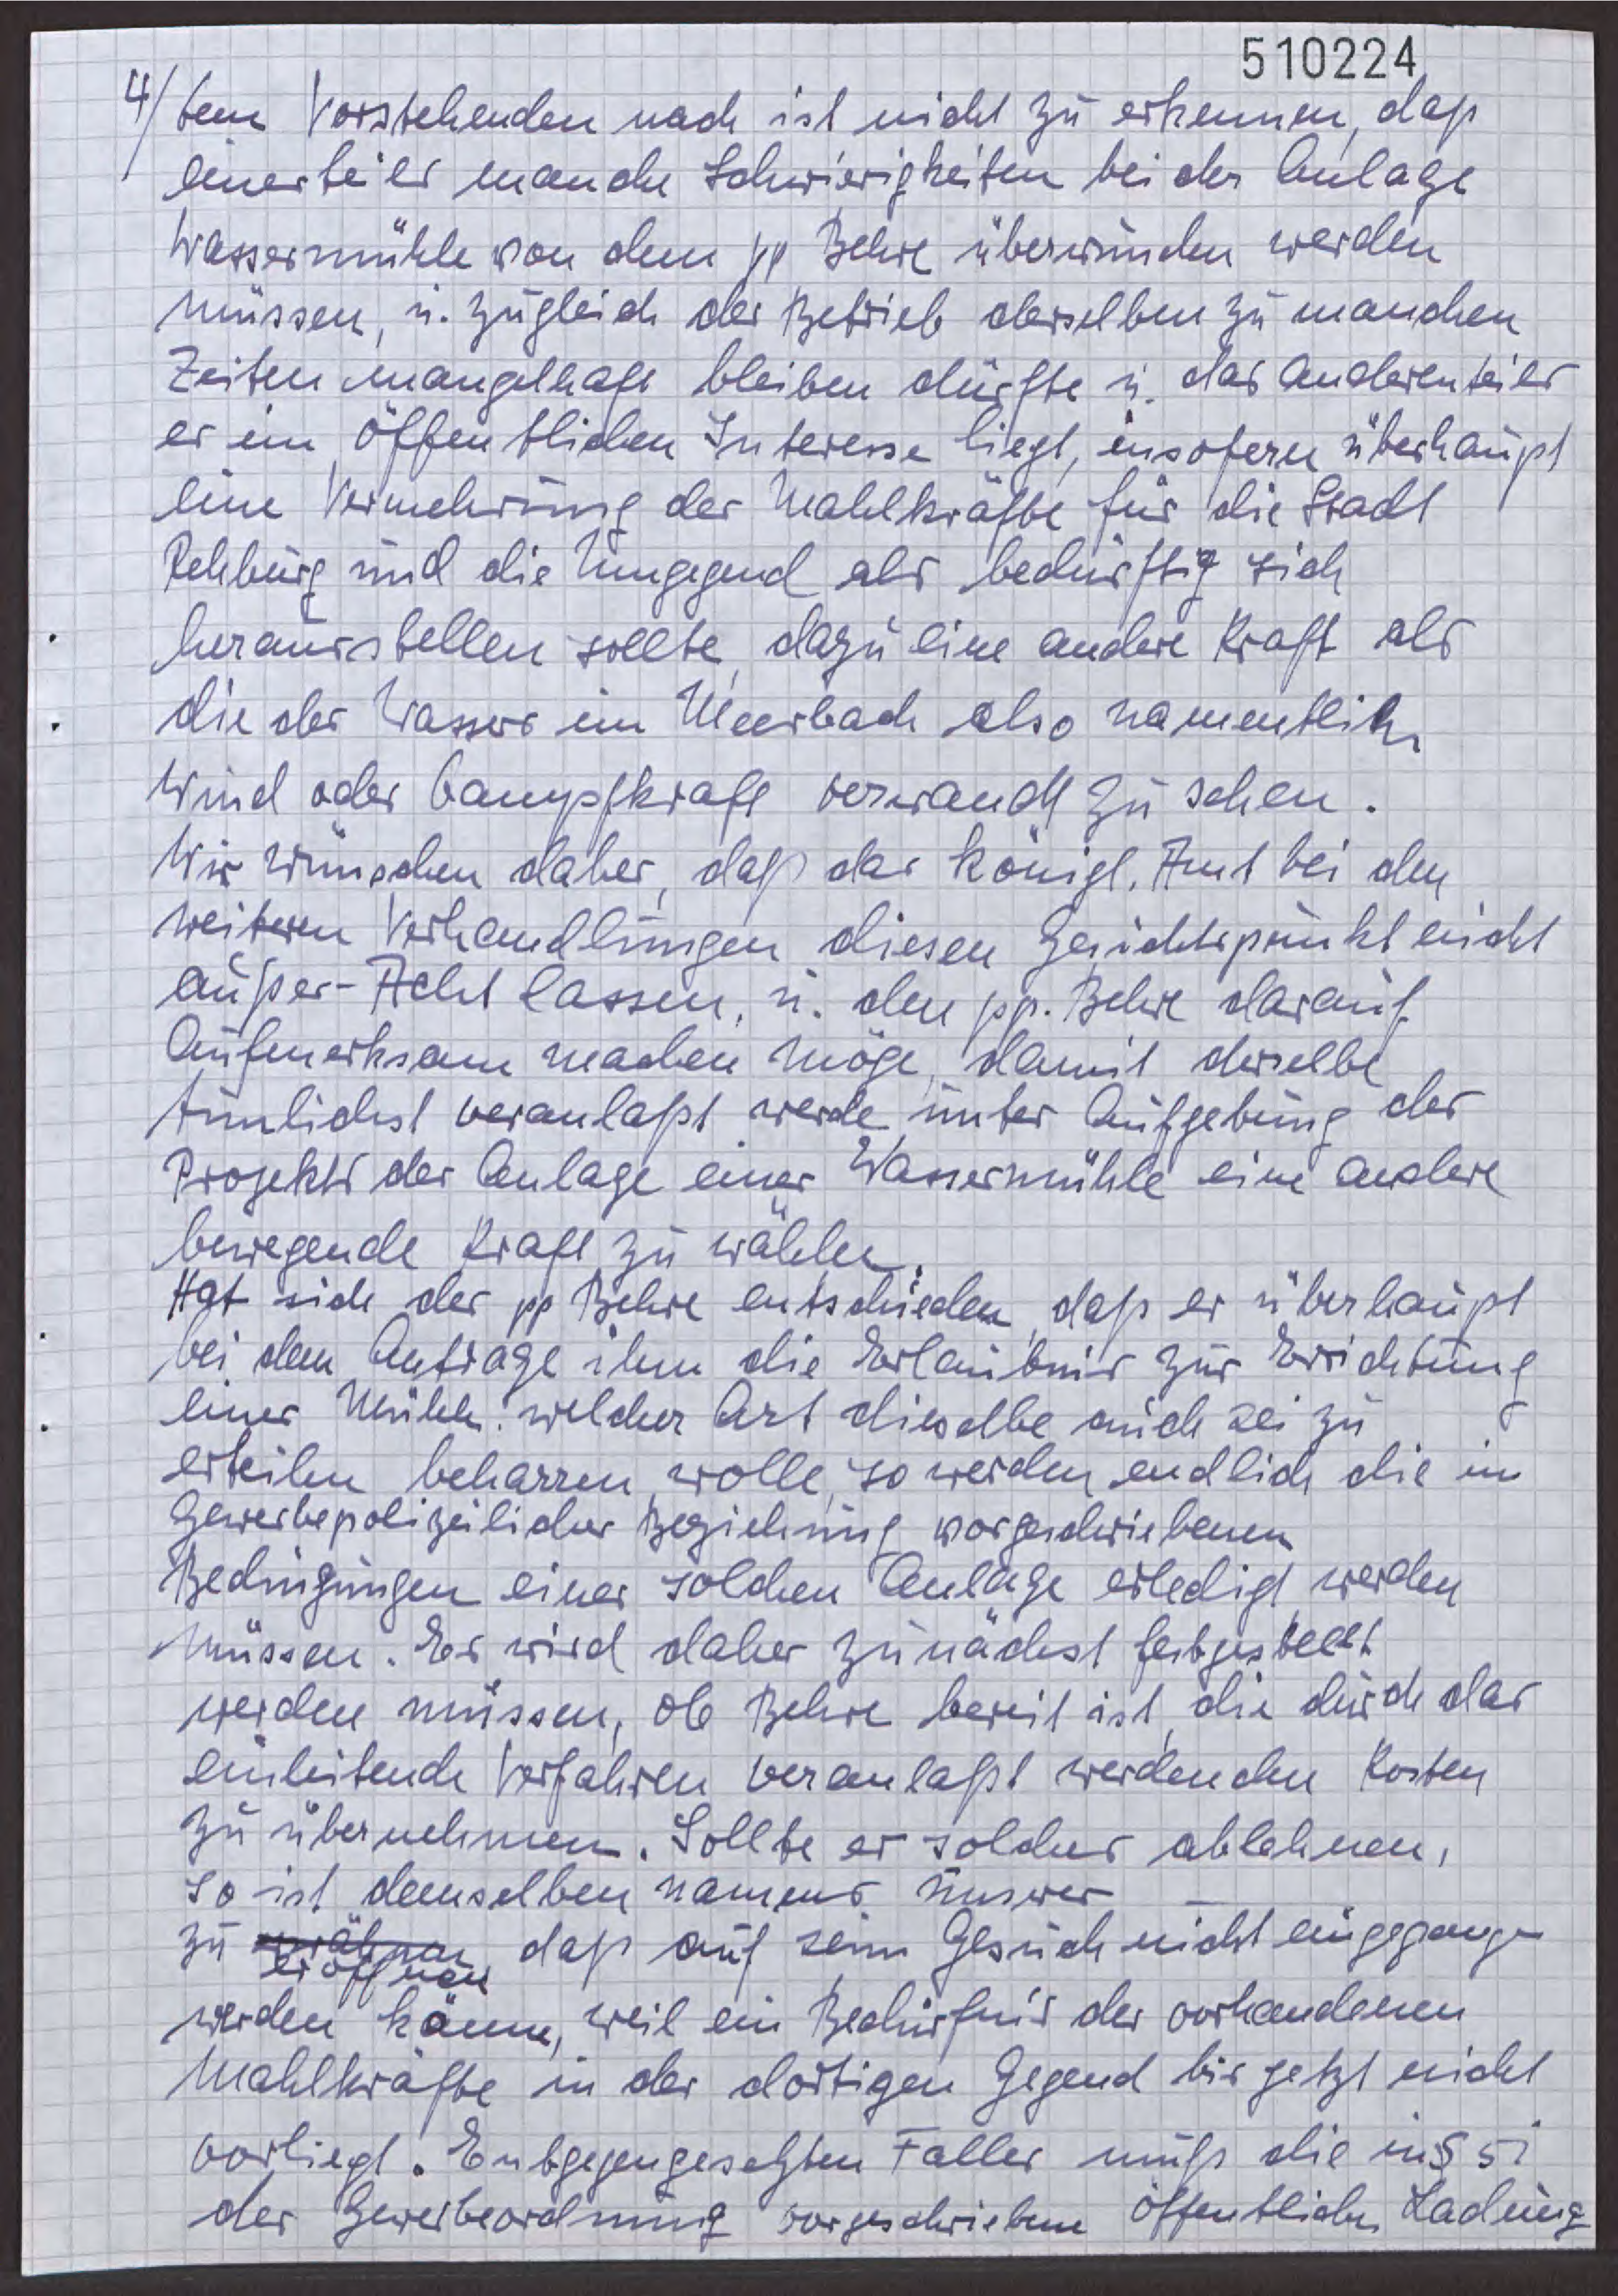 510224
4/ dem Vorstehenden nach ist nicht zu erkennen, daß
einerteiles manche Schwierigkeiten bei der Anlage
Wassermühle von dem pp Behre überwunden werden
müssen, u. zugleich der Betrieb derselben zu manchen
Zeiten mangelhaft bleiben dürfte u. das anderenteiles
es im öffentlichen Interesse liegt, insofern überhaupt
eine Vermehrung der Mahlkräfte für die Stadt
Rehburg und die Umgegend als bedürftig sich
herausstellen sollte, dazu eine andere Kraft als
die des Wassers im Meerbach also namentlich
Wind oder Dampfkraft verwandt zu sehen.
Wir wünschen daher, daß das königl. Amt bei den
weiteren Verhandlungen diesen Gesichtspunkt nicht
außer-Acht lassen, u. den pp. Behre darauf
Aufmerksam machen möge, damit derselbe
tunlichst veranlaßt werde unter Aufgebung des
Projekts der Anlage einer Wassermühle eine andere
bewegende Kraft zu wählen.
Hat sich der pp Behre entschieden, daß er überhaupt
bei dem Antrage ihm die Erlaubnis zur Errichtung
einer Mühle: welcher Art dieselbe auch sei zu
erteilen beharren wolle, so werden endlich die in
Gewerbepolizeilicher Beziehung vorgeschriebenen
Bedingungen einer solchen Anlage erledigt werden
müssen. Es wird daher zunächst festgestellt
werden müssen, ob Behre bereit ist, die durch das
einleitende Verfahren veranlaßt werdenden Kosten
zu übernehmen. Sollte er solches ablehnen,
so ist demselben namens unserer
zu eröffnen, daß auf sein Gesuch nicht eingegangen
werden könne, weil ein Bedürfnis der vorhandenen
Mahlkräfte in der dortigen Gegend bis jetzt nicht
vorliegt. Entgegengesetzten Falles muß die in § 51
der Gewerbeordnung vorgeschriebene öffentliche Ladung